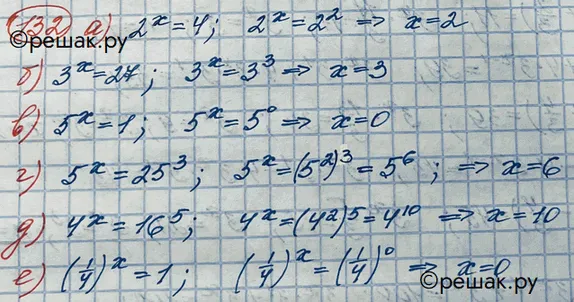 132) а) 2^x = 4; 2^x = 2^2 ⇒ x = 2
©решак.ру
б) 3^x = 27; 3^x = 3^3 ⇒ x = 3
в) 5^x = 1; 5^x = 5^0 ⇒ x = 0
г) 5^x = 25^3; 5^x = (5^2)^3 = 5^6; ⇒ x = 6
д) 4^x = 16^5; 4^x = (4^2)^5 = 4^10 ⇒ x = 10
е) (1/4)^x = 1; (1/4)^x = (1/4)^0 ⇒ x = 0
©решак.ру